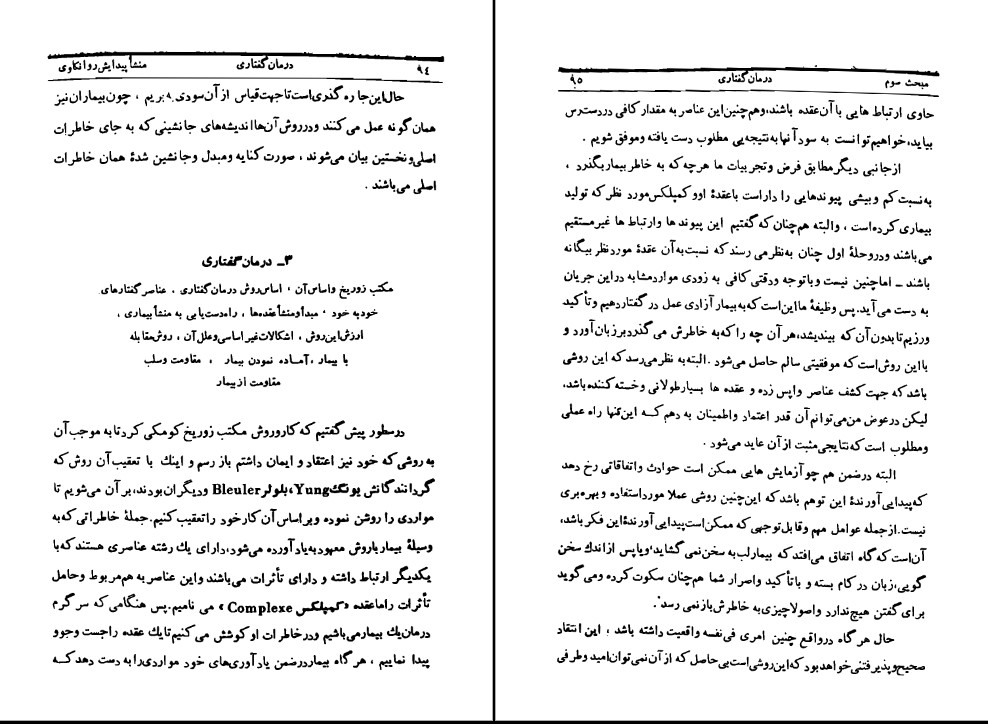 ۹٤ درمان گفتاری منشأ پیدایش روانکاوی
حال این جا ره گذری است تا جهت قیاس از آن سودی به بریم ، چون بیماران نیز
همان گونه عمل می کنند و درروش آن ها اندیشه های جانشینی که به جای خاطرات
اصلی و نخستین بیان می شوند ، صورت کنایه و مبدل و جانشین شدهٔ همان خاطرات
اصلی می باشند .
۳ــ درمان گفتاری
مکتب زوریخ و اساس آن ، اساس روش درمان گفتاری . عناصر گفتارهای
خود به خود ، مبدأ و منشأ عقده ها ، راه دست یابی به منشأ بیماری ،
ارزش این روش ، اشکالات غیر اساسی و علل آن ، روش مقابله
با بیمار ، آماده نمودن بیمار ، مقاومت و سلب
مقاومت از بیمار
درسطور پیش گفتیم که کار و روش مکتب زوریخ کومکی کرد تا به موجب آن
به روشی که خود نیز اعتقاد و ایمان داشتم باز رسم و اینك با تعقیب آن روش که
گردانندگانش یونگ Yung، بلولر Bleuler و دیگران بودند، بر آن می شویم تا
مواردی را روشن نموده و بر اساس آن کار خود را تعقیب کنیم. جملهٔ خاطراتی که به
وسیلهٔ بیمار با روش معهود به یاد آورده می شود، دارای یك رشته عناصری هستند که با
یکدیگر ارتباط داشته و دارای تأثرات می باشند و این عناصر به هم مربوط و حامل
تأثرات را ما عقده «کمپلکس Complexe » می نامیم. پس هنگامی که سر گرم
درمان یك بیمار می باشیم و در خاطرات او کوشش می کنیم تا یك عقده را جست و جو و
پیدا نماییم ، هر گاه بیمار در ضمن یاد آوری های خود مواردی را به دست دهد کــه
مبحث سوم درمان گفتاری ۹٥
حاوی ارتباط هایی با آن عقده باشند، و هم چنین این عناصر به مقدار کافی در دست رس
بیاید، خواهیم توانست به سود آنها به نتیجه یی مطلوب دست یافته و موفق شویم .
از جانبی دیگر مطابق فرض و تجربیات ما هرچه که به خاطر بیمار بگذرد ،
به نسبت کم و بیشی پیوندهایی را دار است با عقدهٔ او و کمپلکس مورد نظر که تولید
بیماری کرده است ، و البته هم چنان که گفتیم این پیوند ها و ارتباط ها غیر مستقیم
می باشند و در وحلهٔ اول چنان به نظر می رسند که نسبت به آن عقدهٔ مورد نظر بیگانه
باشند ــ اما چنین نیست و با توجه و دقتی کافی به زودی موارد مشابه در این جریان
به دست می آید. پس وظیفهٔ ما این است که به بیمار آزادی عمل در گفتار دهیم و تأ کید
ورزیم تا بدون آن که بیندیشد، هر آن چه را که به خاطرش می گذرد بر زبان آورد و
با این روش است که موفقیتی سالم حاصل می شود . البته به نظر می رسد که این روشی
باشد که جهت کشف عناصر واپس زده و عقده ها بسیار طولانی و خسته کننده باشد،
لیکن در عوض من می توانم آن قدر اعتماد و اطمینان به دهم کــه این تنها راه عملی
و مطلوب است که نتایجی مثبت از آن عاید می شود .
البته در ضمن هم چو آزمایش هایی ممکن است حوادث و اتفاقاتی رخ دهد
که پیدایی آورندهٔ این توهم باشد که این چنین روشی عملا مورد استفاده و بهره بری
نیست. از جمله عوامل مهم و قابل توجهی که ممکن است پیدایی آورندهٔ این فکر باشد،
آن است که گاه اتفاق می افتد که بیمار لب به سخن نمی گشاید، و یا پس از اندك سخن
گویی، زبان در کام بسته و با تأ کید و اصرار شما هم چنان سکوت کرده و می گوید
برای گفتن هیچ ندارد و اصولا چیزی به خاطرش باز نمی رسد .
حال هر گاه در واقع چنین امری فی نفسه واقعیت داشته باشد ، این انتقاد
صحیح و پذیرفتنی خواهد بود که این روشی است بی حاصل که از آن نمی توان امید و طرفی